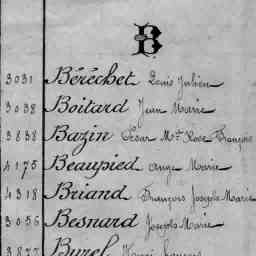 B
3031 Béréchet Denis Julien
3038 Boitard Jean Marie
3838 Bazin César Mie Rose François
4175 Beaupied Ange Marie
4318 Briand François Joseph Marie
3056 Besnard Joseph Marie
Burel